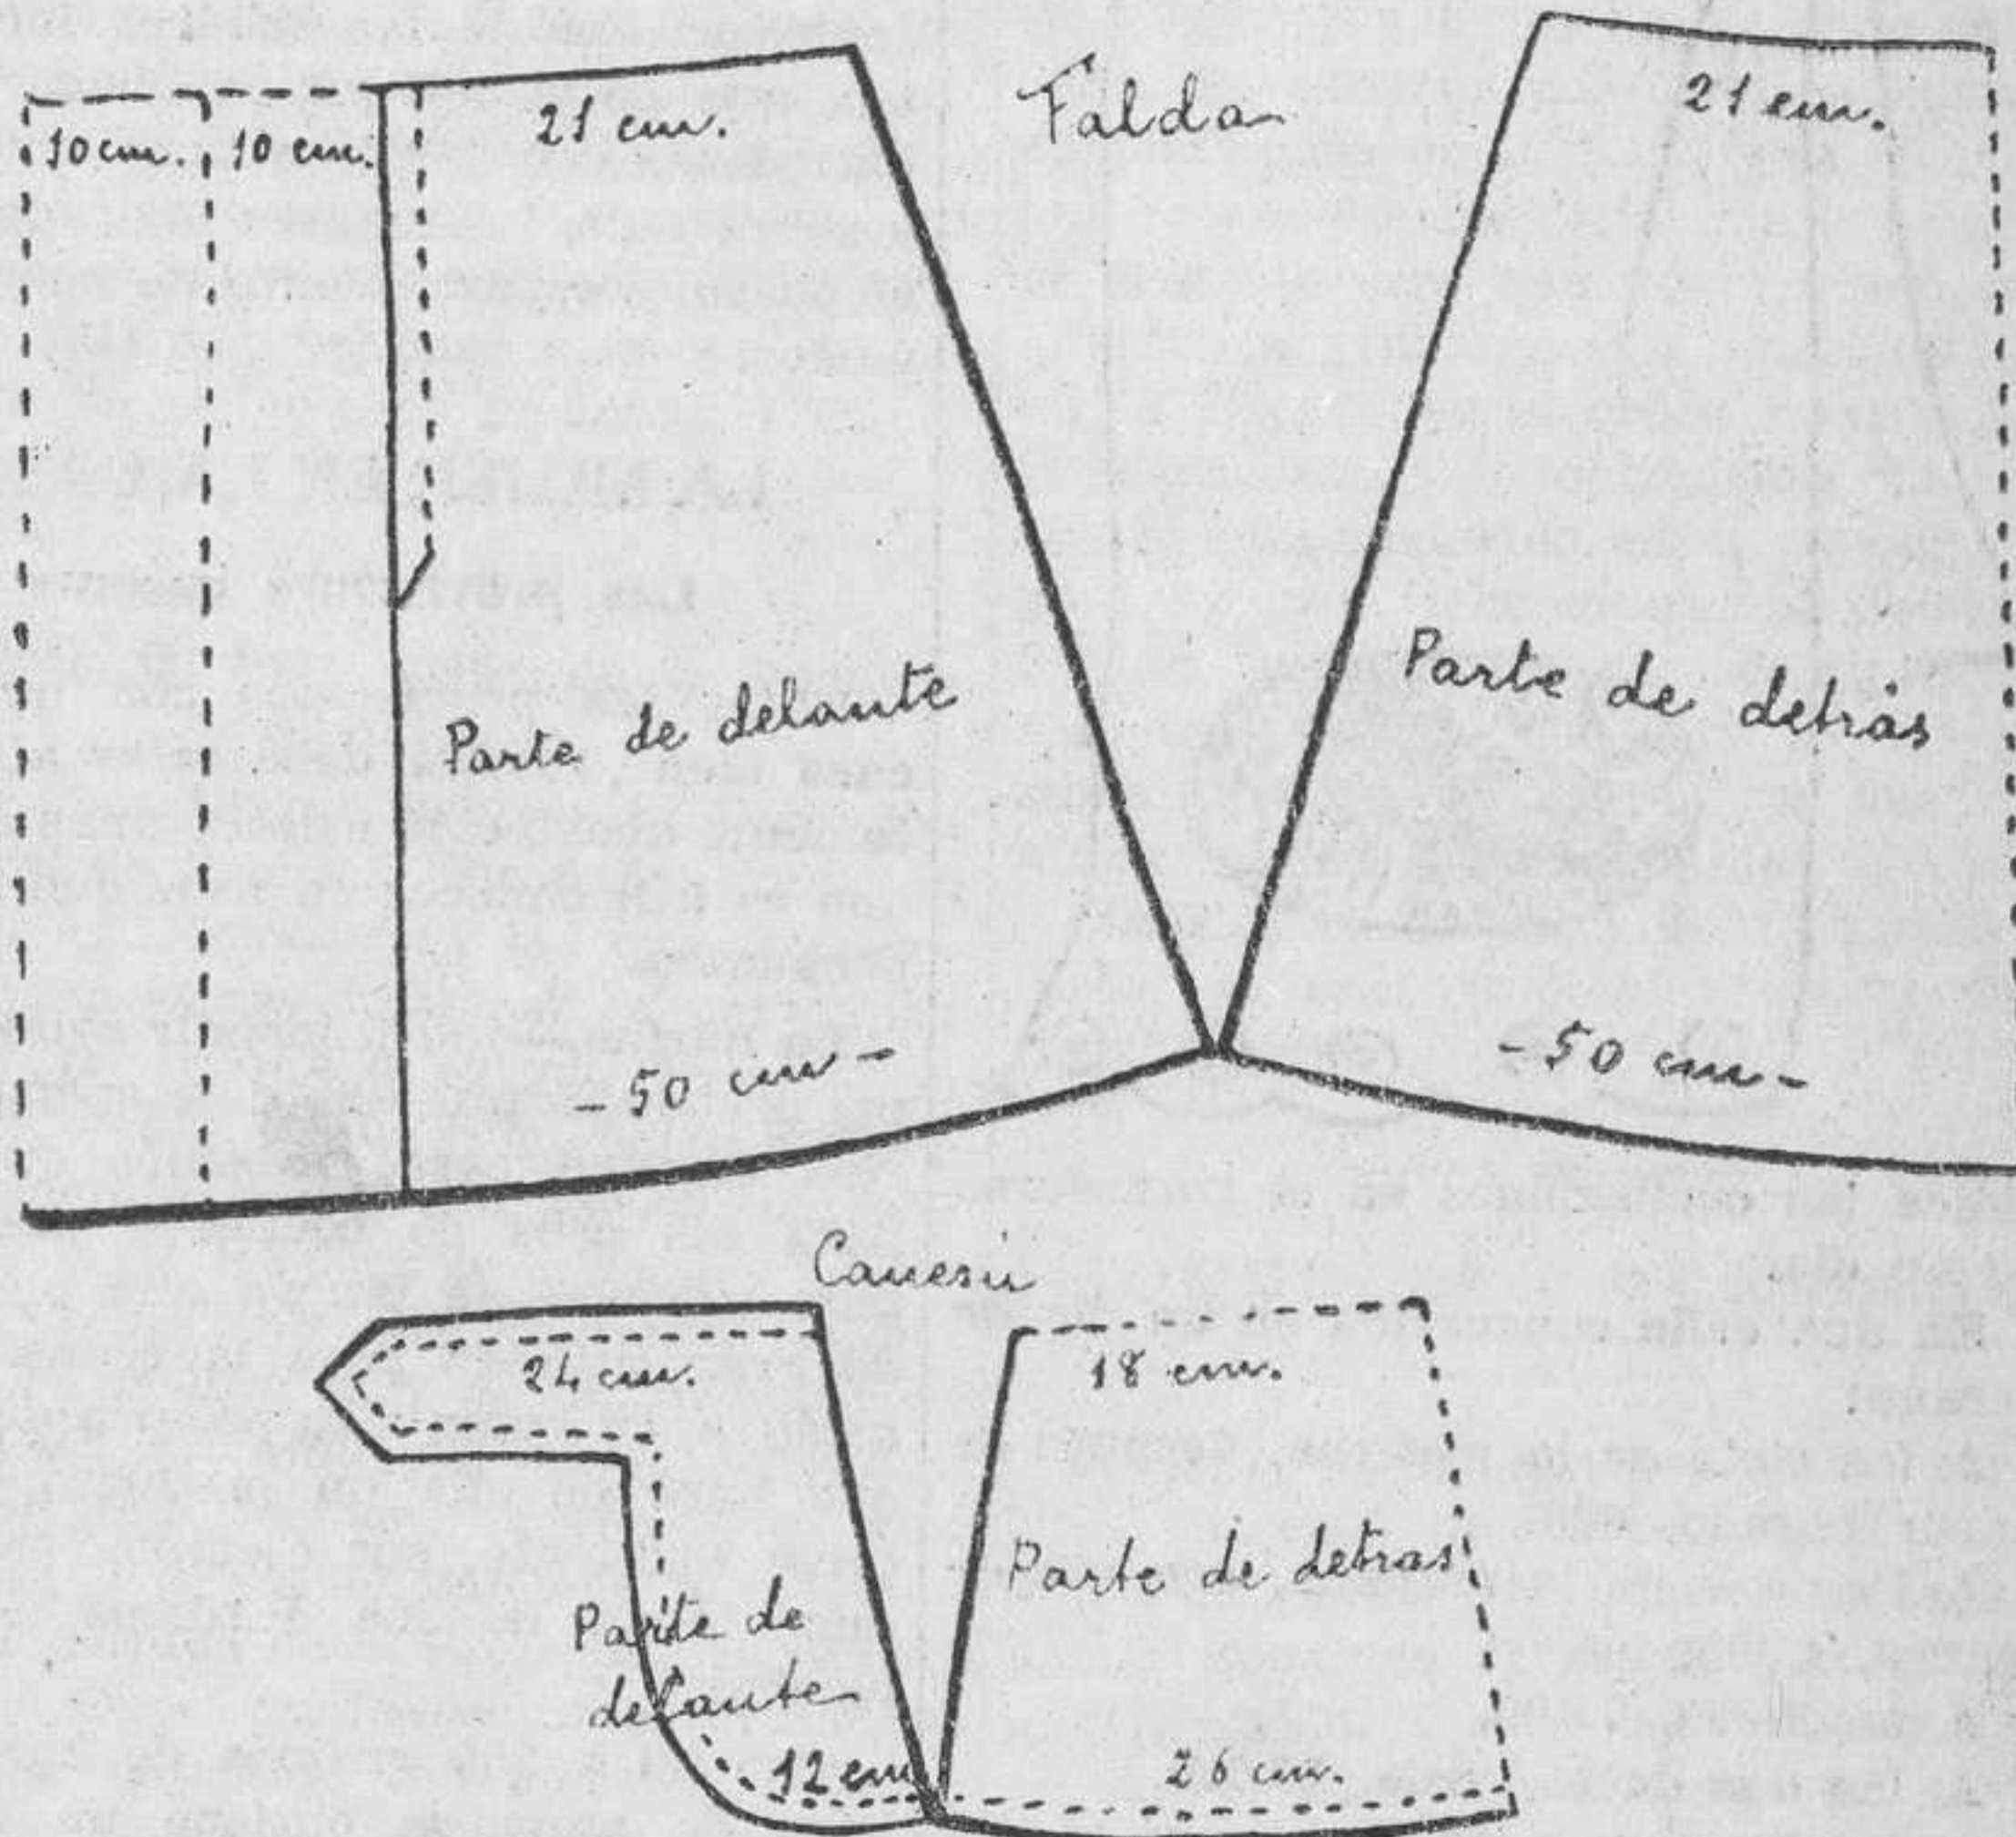 Falda
10 cm.
10 cm.
21 cm.
21 cm.
Parte de delante
Parte de detrás
- 50 cm -
- 50 cm -
Canesú
24 cm.
18 cm.
Parte de
delante
Parte de detras
12 cm
26 cm.